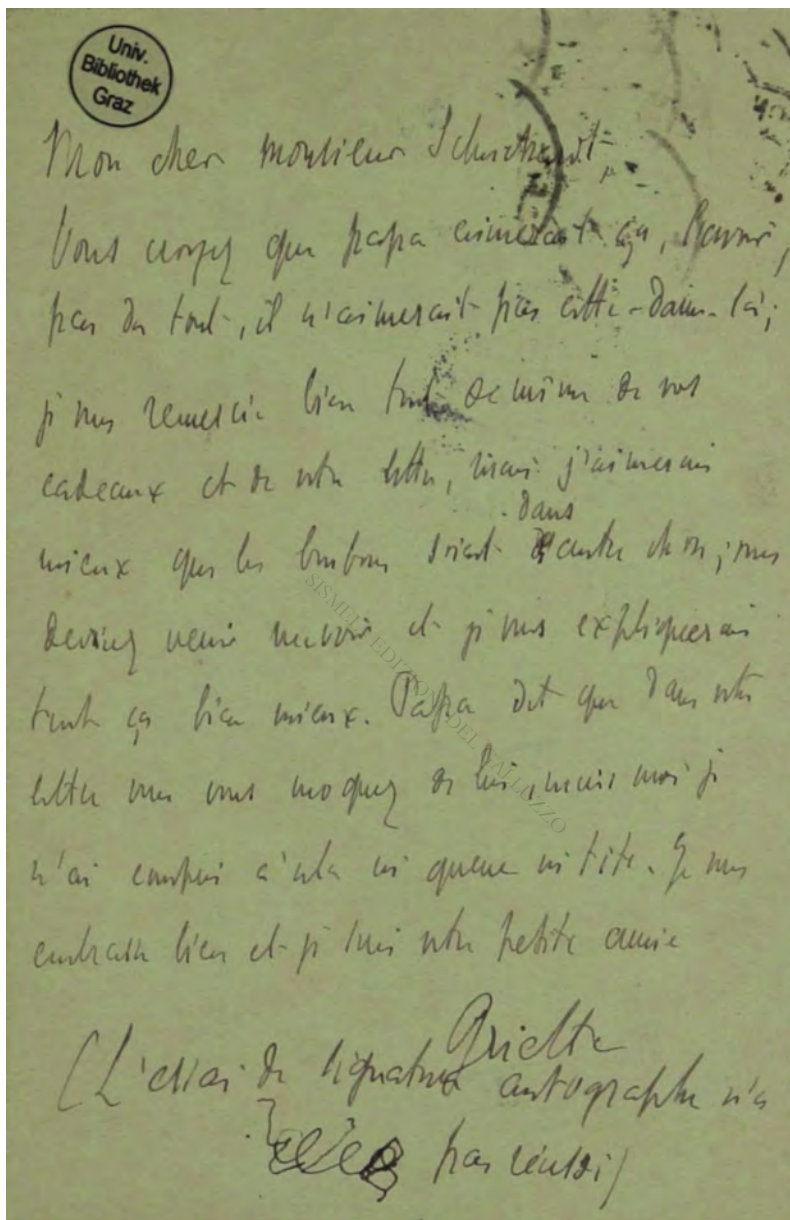 Univ.
Bibliothek
Graz
Mon cher monsieur Schuchardt,
Vous croyez que papa aimerait ça,
pas du tout, il n'aimerait pas cette-dame-là;
je vous remercie bien tout de même de vos
cadeaux et de votre lettre, mais j'aimerais
dans
mieux que les bonbons soient autre chose; vous
devriez venir me voir et je vous expliquerais
tout ça bien mieux. Papa dit que dans votre
lettre vous vous moquez de lui, mais moi je
n'ai compris à cela ni queue ni tête. Je vous
embrasse bien et je suis votre petite amie
(L'essai de signature autographe n'a
pas réussi)
SISMEL EDIZIONI DEL GALLUZZO